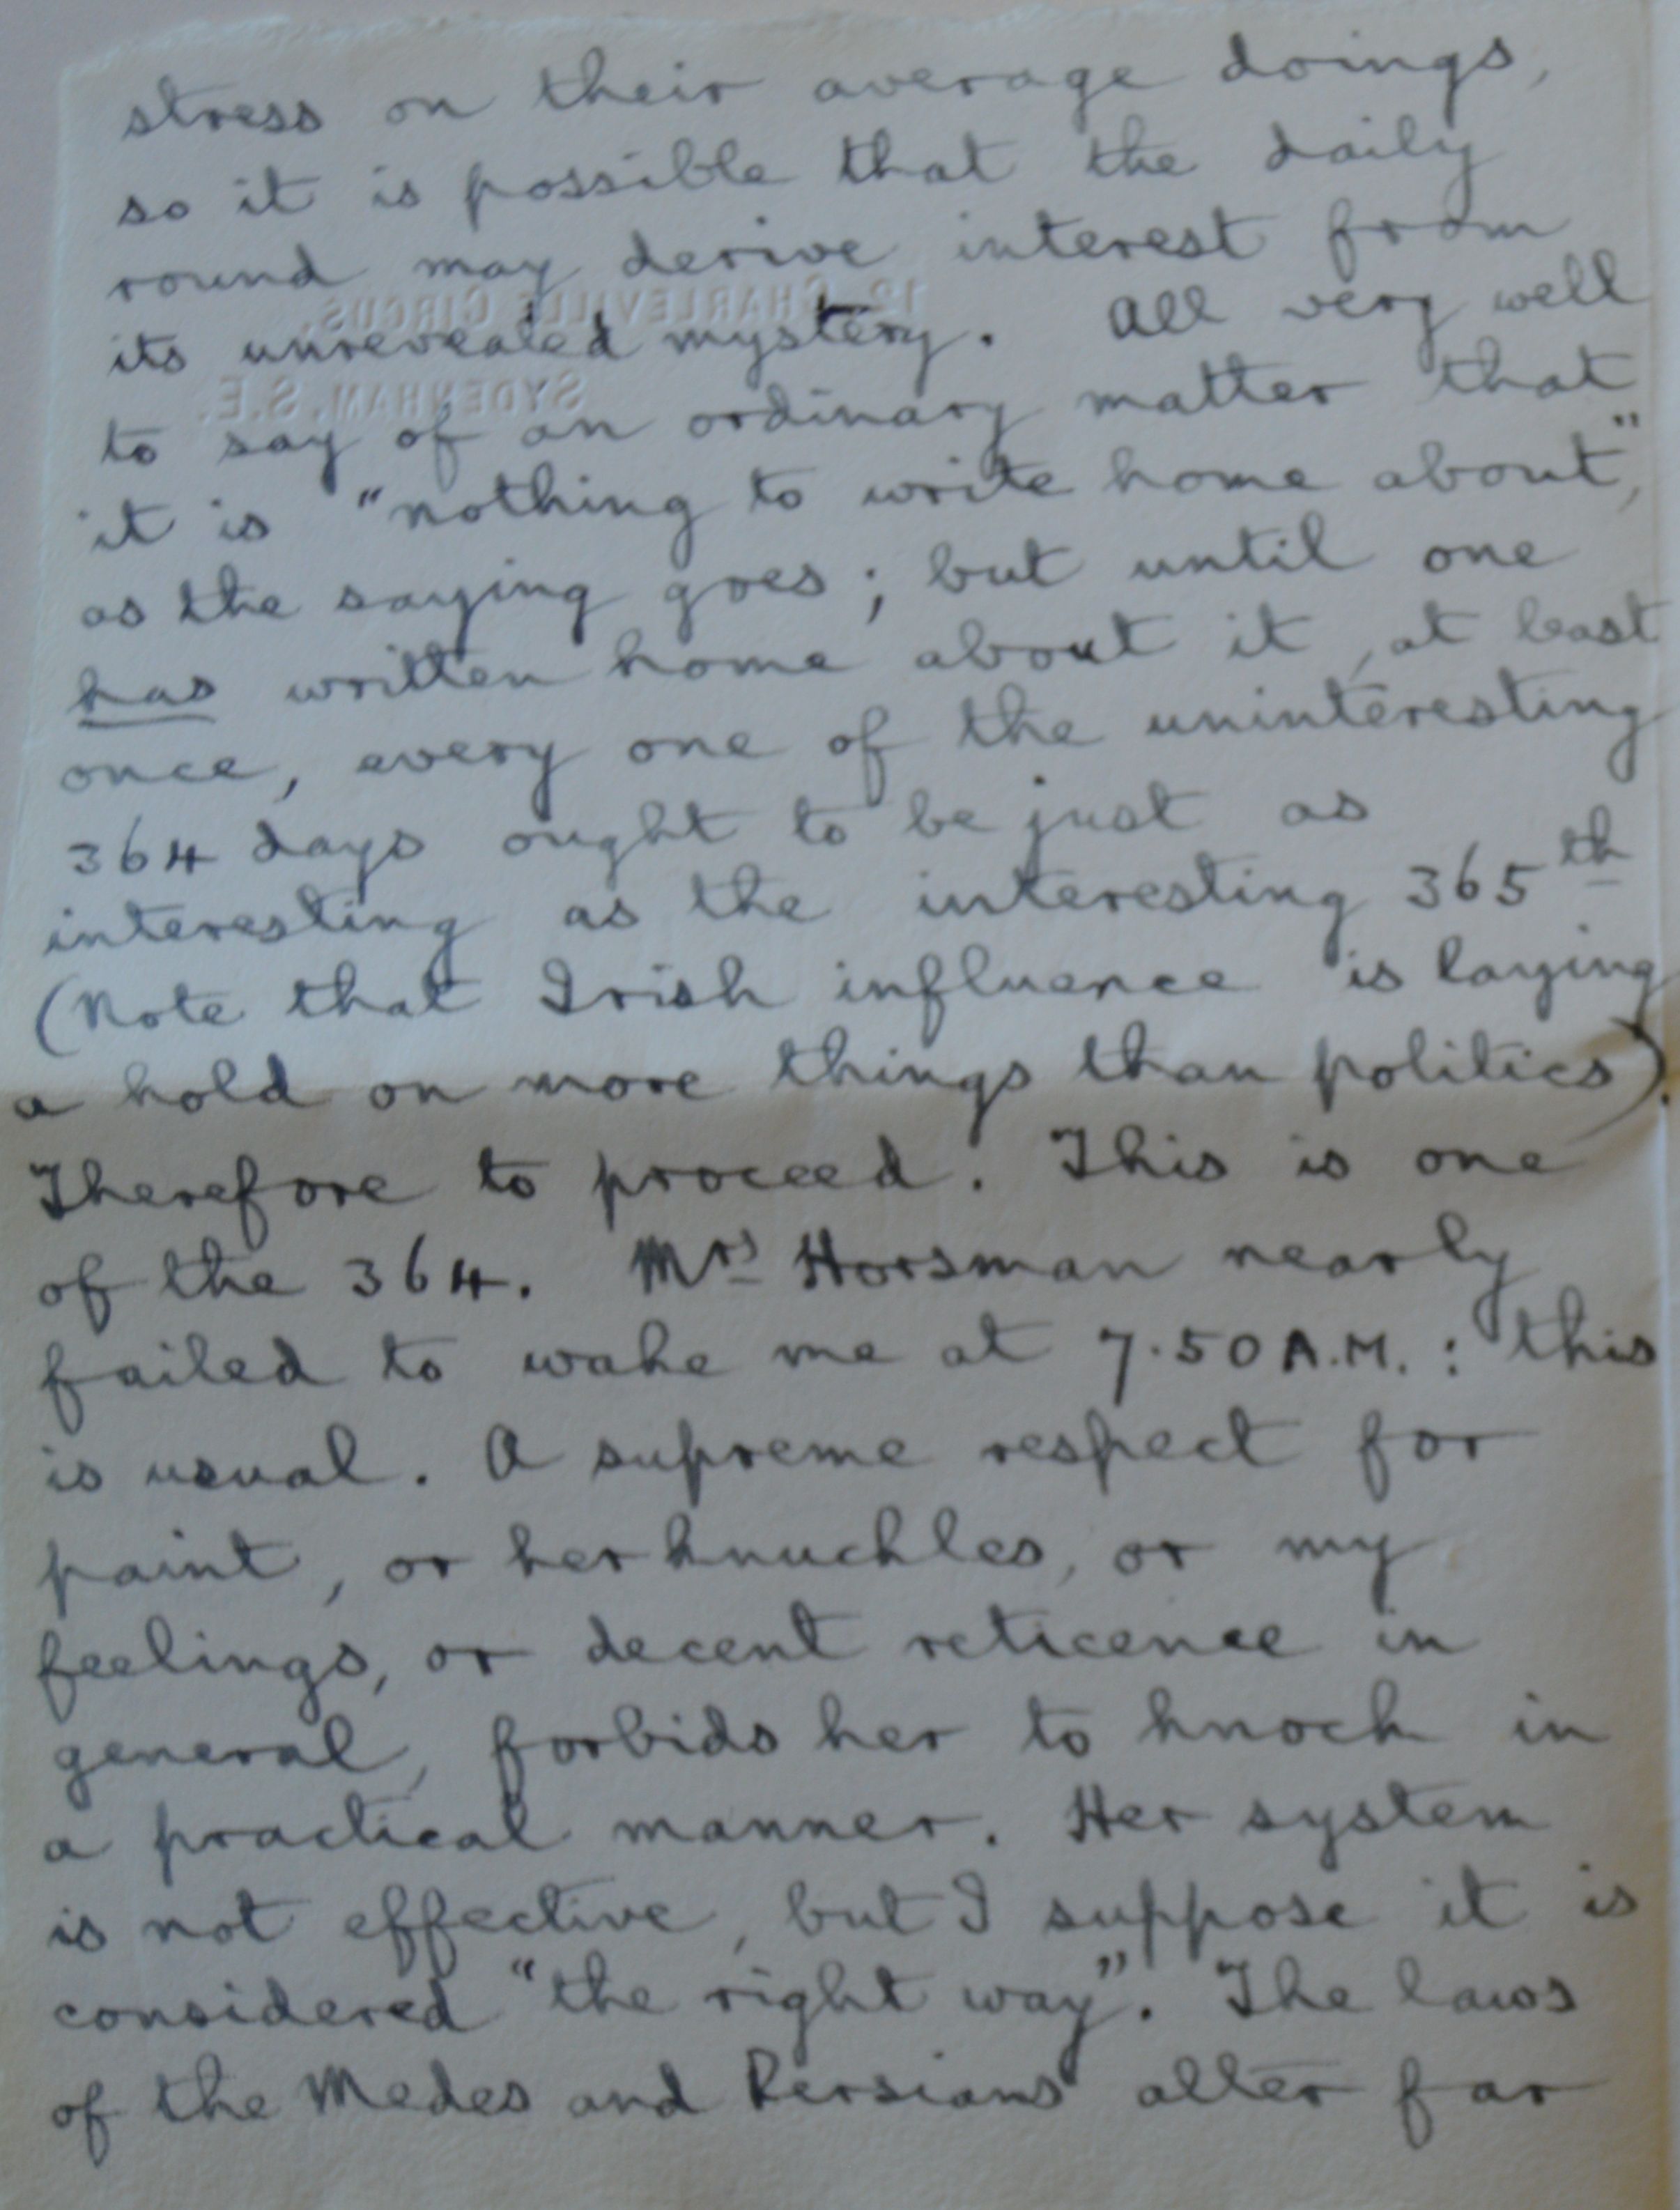 stress on their average doings,
so it is possible that the daily
round may derive interest from
12, CHARLEVILLE CIRCUS,
its unrevealed mystery. All very well
SYDENHAM, S.E.
to say of an ordinary matter that
it is "nothing to write home about",
as the saying goes; but until one
has written home about it, at least
once, every one of the uninteresting
364 days ought to be just as
interesting as the interesting 365th
(Note that Irish influence is laying
a hold on more things than politics).
Therefore to proceed. This is one
of the 364. Mrs Horsman nearly
failed to wake me at 7.50 A.M.: this
is usual. A supreme respect for
paint, or her knuckles, or my
feelings, or decent reticence in
general, forbids her to knock in
a practical manner. Her system
is not effective, but I suppose it is
considered "the right way". The laws
of the Medes and Persians alter far